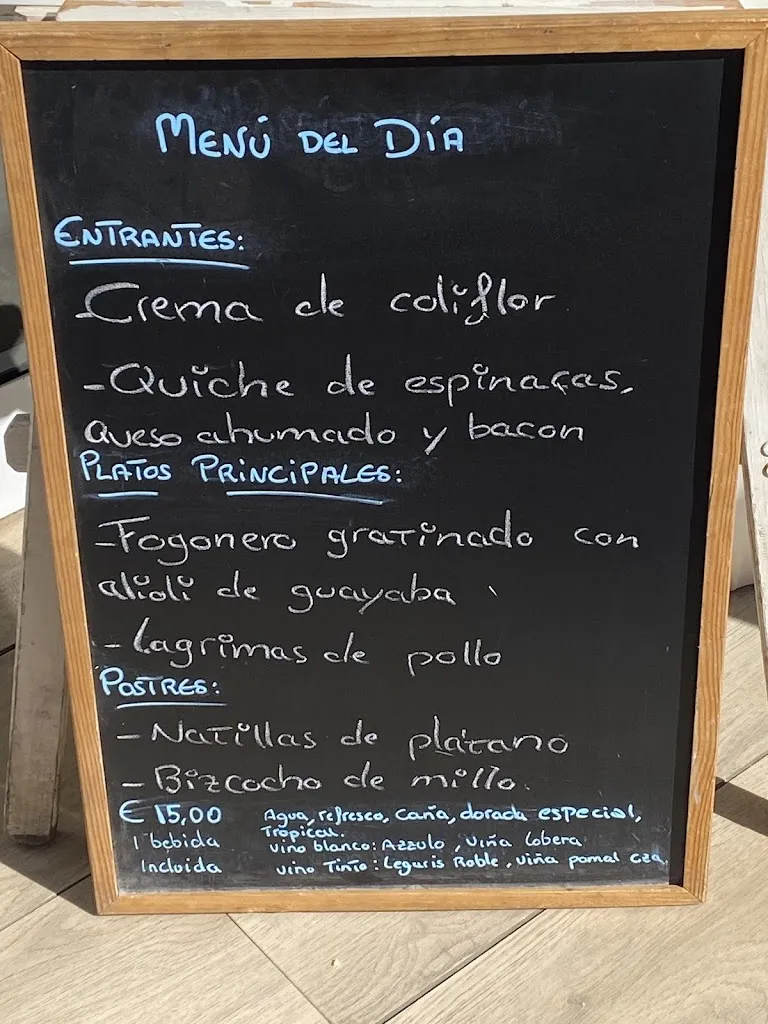 MENÚ DEL DÍA
ENTRANTES:
-Crema de coliflor
-Quiche de espinacas,
queso ahumado y bacon
PLATOS PRINCIPALES:
-Fogonero gratinado con
alioli de guayaba
-lagrimas de pollo
POSTRES:
-Natillas de plátano
-Bizcocho de millo.
€ 15,00 Agua, refresco, caña, dorada especial,
Tropical.
1 bebida vino blanco: Azzulo, viña lobera
Incluida vino Tinto: Leguris Roble, viña pomal cza